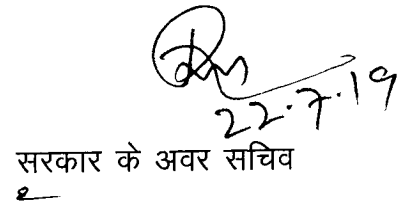 22.7.19
सरकार के अवर सचिव